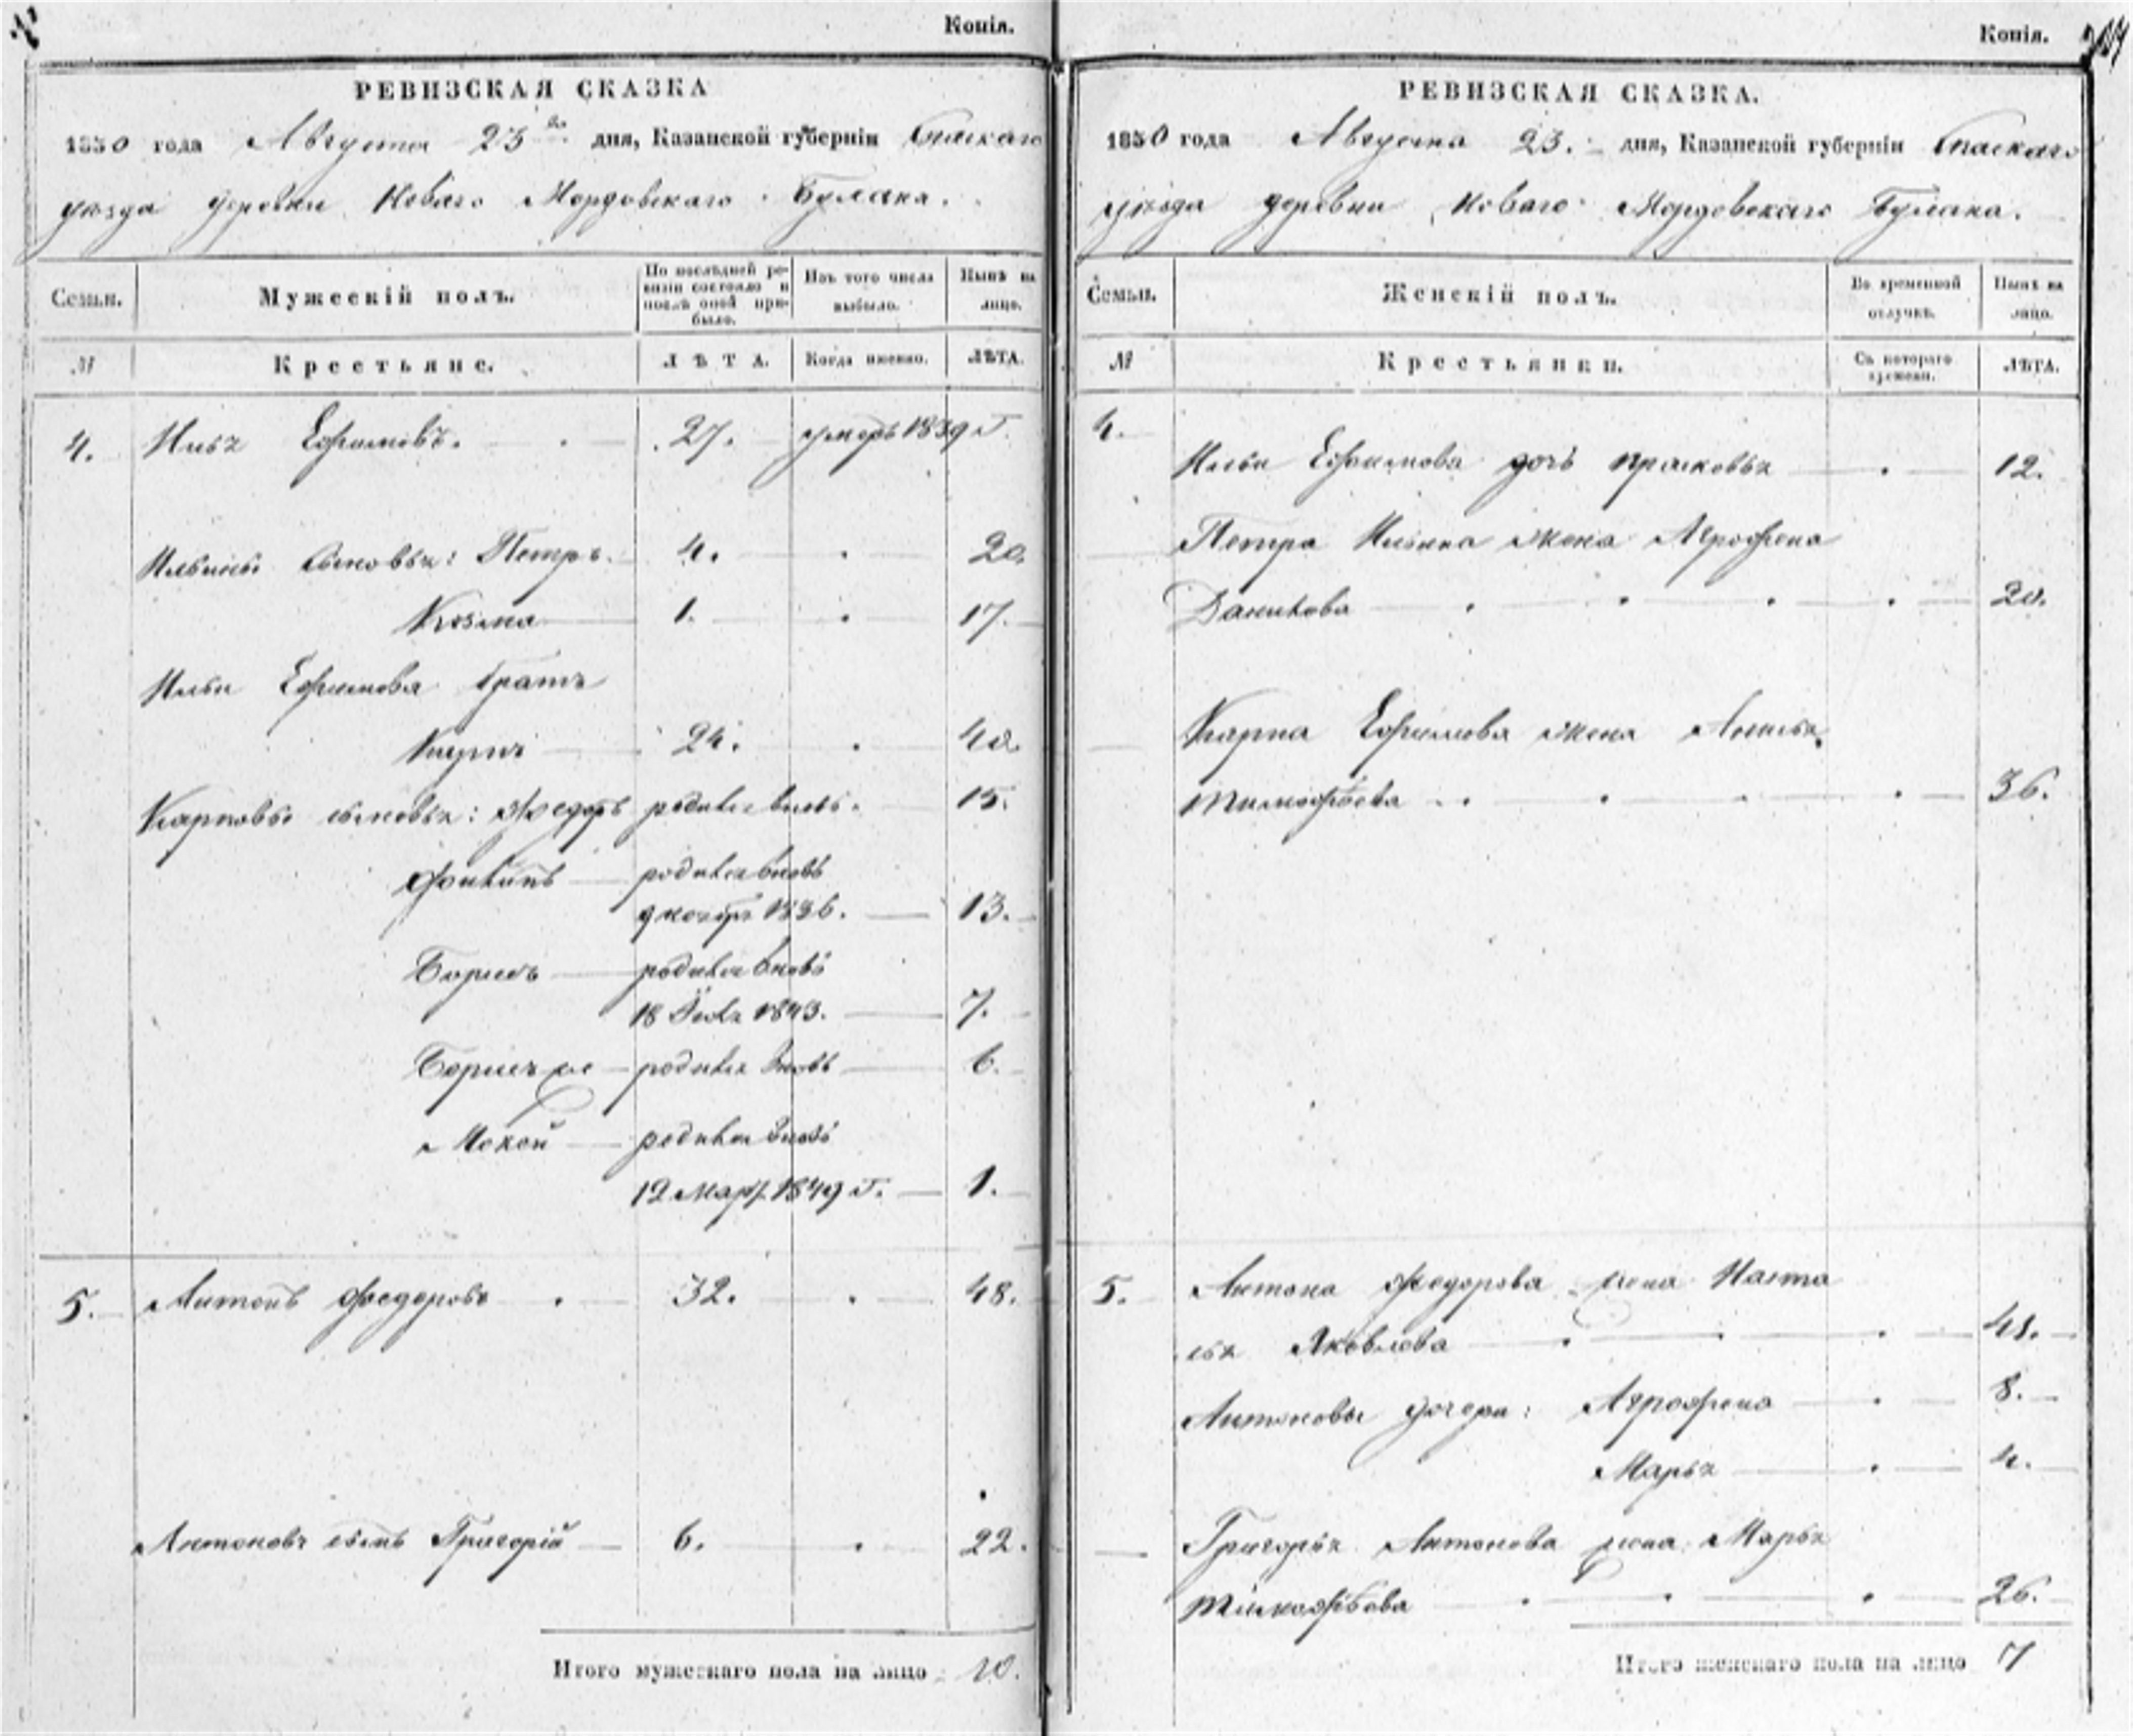 Копія.
РЕВИЗСКАЯ СКАЗКА
1850 года Августа 23го дня, Казанской губерніи Спаскаго
уѣзда деревни Новаго Мордовскаго Булака.
Семьи.
Мужескій полъ.
По послѣдней ре-
визіи состояло и
послѣ оной при-
было.
Изъ того числа
выбыло.
Нынѣ на
лицо.
№
Крестьяне.
ЛѢТА.
Когда именно.
ЛѢТА.
4. Илья Ефимовъ. 27. умеръ 1839 г.
Ильины сыновья: Петръ. 4. 20.
Козма 1. 17.
Ильи Ефимова братъ
Карпъ 24. 40
Карповы сыновья: Федоръ родился вновь. 15.
Филипъ родился вновь
9 ноябр 1836. 13.
Борисъ родился вновь
18 Іюля 1843. 7.
Борисъ же родился вновь 6.
Мокей родился вновь
12 Мар. 1849 г. 1.
5. Антонъ Федоровъ 32. 48.
Антоновъ сынъ Григорій 6. 22.
Итого мужескаго пола на лицо 10.
Копія.
РЕВИЗСКАЯ СКАЗКА.
1850 года Августа 23. дня, Казанской губерніи Спаскаго
уѣзда деревни Новаго Мордовскаго Булака.
Семьи.
Женскій полъ.
Во временной
отлучкѣ.
Нынѣ на
лицо.
№
Крестьянки.
Съ котораго
времени.
ЛѢТА.
4.
Ильи Ефимова дочь Прасковья 12.
Петра Ильина жена Агрофена
Данилова 20.
Карпа Ефимова жена Анисья
Тимофѣева 36.
5. Антона Федорова жена Наста
сья Яковлева 48.
Антоновы дочери: Агрофена 8.
Марья 4.
Григорья Антонова жена Марья
Тимофѣева 26.
Итого женскаго пола на лицо 7